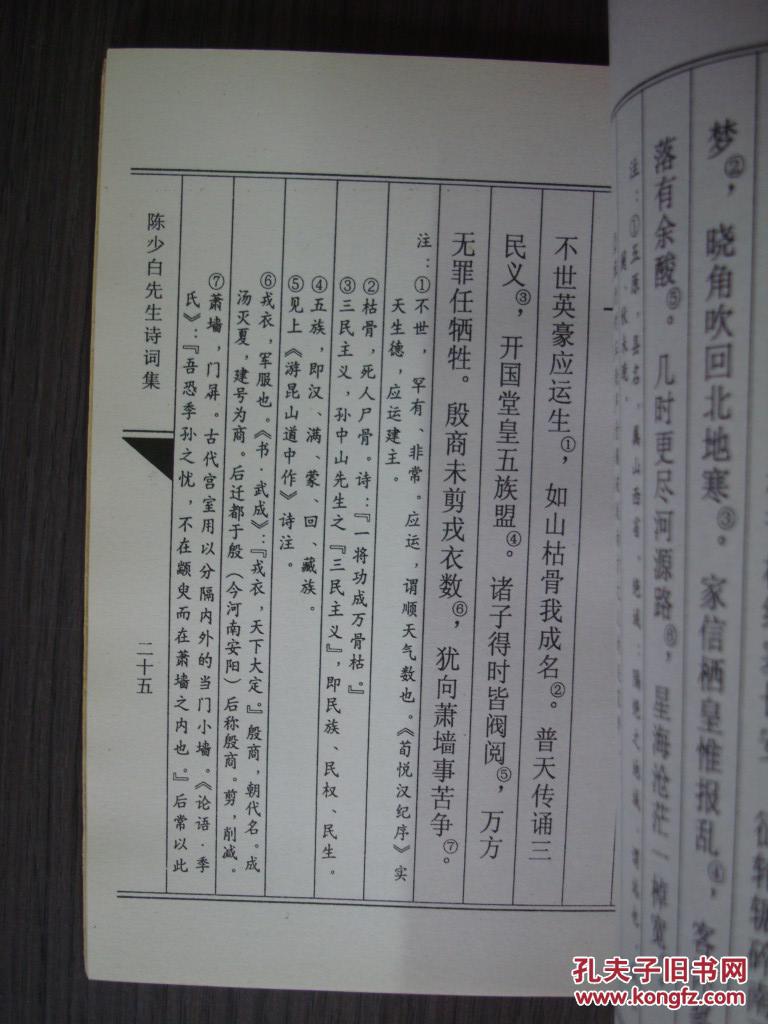 梦②，晓角吹回北地寒③。家信栖皇惟报乱④，客
落有余酸⑤。几时更尽河源路⑥，星海沧茫一棹宽
不世英豪应运生①，如山枯骨我成名②。普天传诵三
民义③，开国堂皇五族盟④。诸子得时皆阀阅⑤，万方
无罪任牺牲。殷商未剪戎衣数⑥，犹向萧墙事苦争⑦。
注：①不世，罕有、非常。应运，谓顺天气数也。《荀悦汉纪序》实
天生德，应运建主。
②枯骨，死人尸骨。诗：『一将功成万骨枯。』
③三民主义，孙中山先生之『三民主义』，即民族、民权、民生。
④五族，即汉、满、蒙、回、藏族。
⑤见上《游昆山道中作》诗注。
⑥戎衣，军服也。《书·武成》：『戎衣，天下大定。』殷商，朝代名。成
汤灭夏，建号为商。后迁都于殷（今河南安阳）后称殷商。剪，削减。
⑦萧墙，门屏。古代宫室用以分隔内外的当门小墙。《论语·季
氏》：『吾恐季孙之忧，不在颛臾而在萧墙之内也。』后常以此
陈少白先生诗词集
二十五
孔夫子旧书网
www.kongfz.com